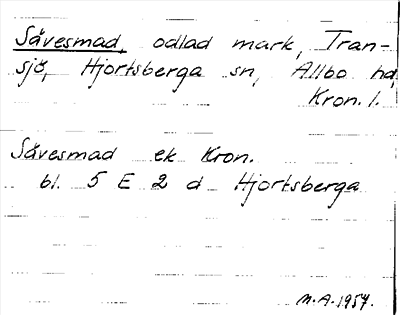 Sävesmad, odlad mark, Tran-
sjö, Hjortsberga sn, Allbo hd,
Kron. l.
Sävesmad ek Kron.
bl. 5 E 2 d Hjortsberga
M.A. 1957.